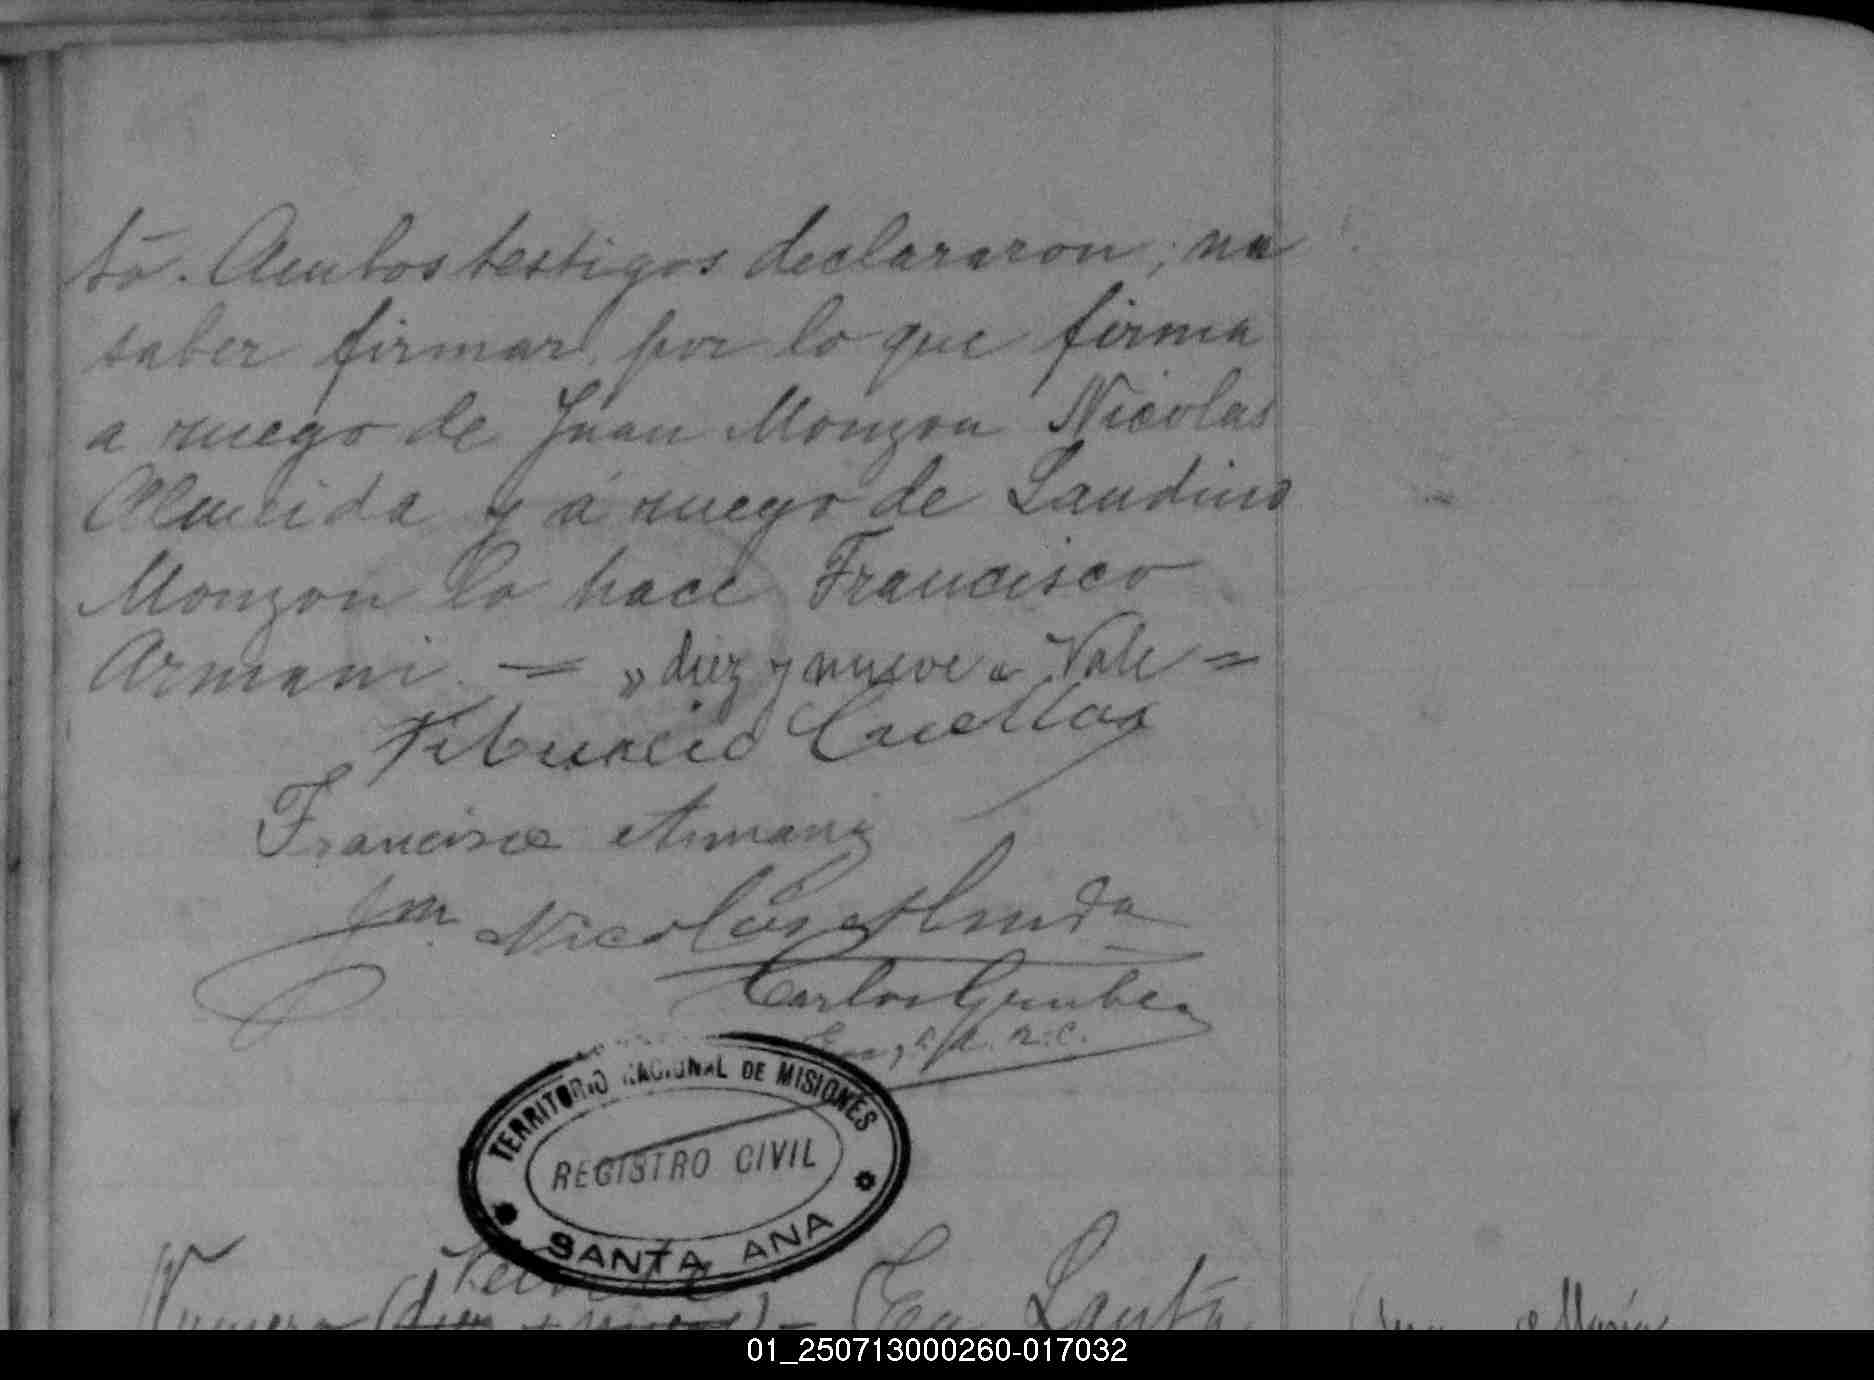 tó. Ambos testigos declararon, no
saber firmar, por lo que firma
a ruego de Juan Monzon Nicolas
Almeida y á ruego de Laudino
Monzon lo hace Francisco
Armani. — "diez y nueve" Vale =
Tiburcio Cuellar
Francisco Armani
Nicolás Almeida
Carlos Gruber
TERRITORIO NACIONAL DE MISIONES
REGISTRO CIVIL
SANTA ANA
Numero (diez y nueve) - En Santa
María
01_250713000260-017032